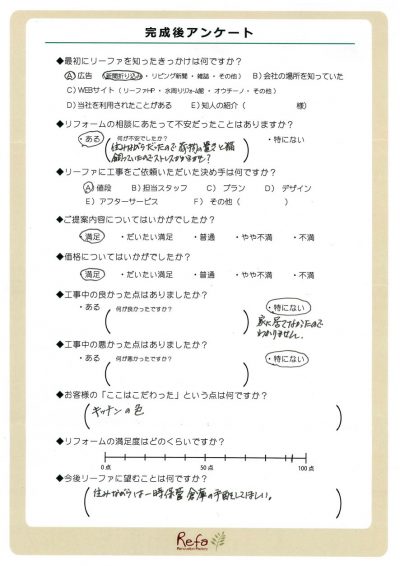 完成後アンケート
◆最初にリーファを知ったきっかけは何ですか?
A) 広告 ( 新聞折り込み ・ リビング新聞 ・ 雑誌 ・ その他 ) B) 会社の場所を知っていた
C) WEBサイト ( リーファHP ・ 水周りリフォーム館 ・ オウチーノ ・ その他 )
D) 当社を利用されたことがある E) 知人の紹介 ( 様)
◆リフォームの相談にあたって不安だったことはありますか?
・ある 何が不安でしたか? ・特にない
住みながらだったので荷物の置き場と猫
飼っていたのでストレス
◆リーファに工事をご依頼いただいた決め手は何ですか?
A) 値段 B) 担当スタッフ C) プラン D) デザイン
E) アフターサービス F) その他 ( )
◆ご提案内容についてはいかがでしたか?
・満足 ・だいたい満足 ・普通 ・やや不満 ・不満
◆価格についてはいかがでしたか?
・満足 ・だいたい満足 ・普通 ・やや不満 ・不満
◆工事中の良かった点はありましたか?
・ある 何が良かったですか? ・特にない
家に居てなかったので
わかりません。
◆工事中の悪かった点はありましたか?
・ある 何が悪かったですか? ・特にない
◆お客様の「ここはこだわった」という点は何ですか?
キッチンの色
◆リフォームの満足度はどのくらいですか?
0点 50点 100点
◆今後リーファに望むことは何ですか?
住みながらは一時保管倉庫の手配をしてほしい。
Refa
Renovation Factory